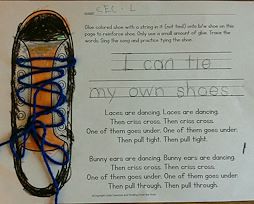 CECIL
Glue colored shoe with a string in it (not tied) onto b/w shoe on this
page to reinforce shoe. Only use a small amount of glue. Trace the
words. Sing the song and practice tying the shoe.
I can tie
my own shoes.
Laces are dancing. Laces are dancing.
Then criss cross. Then criss cross.
One of them goes under. One of them goes under.
Then pull tight. Then pull tight.
Bunny ears are dancing. Bunny ears are dancing.
Then criss cross. Then criss cross.
One of them goes under. One of them goes under.
Then pull through. Then pull through.